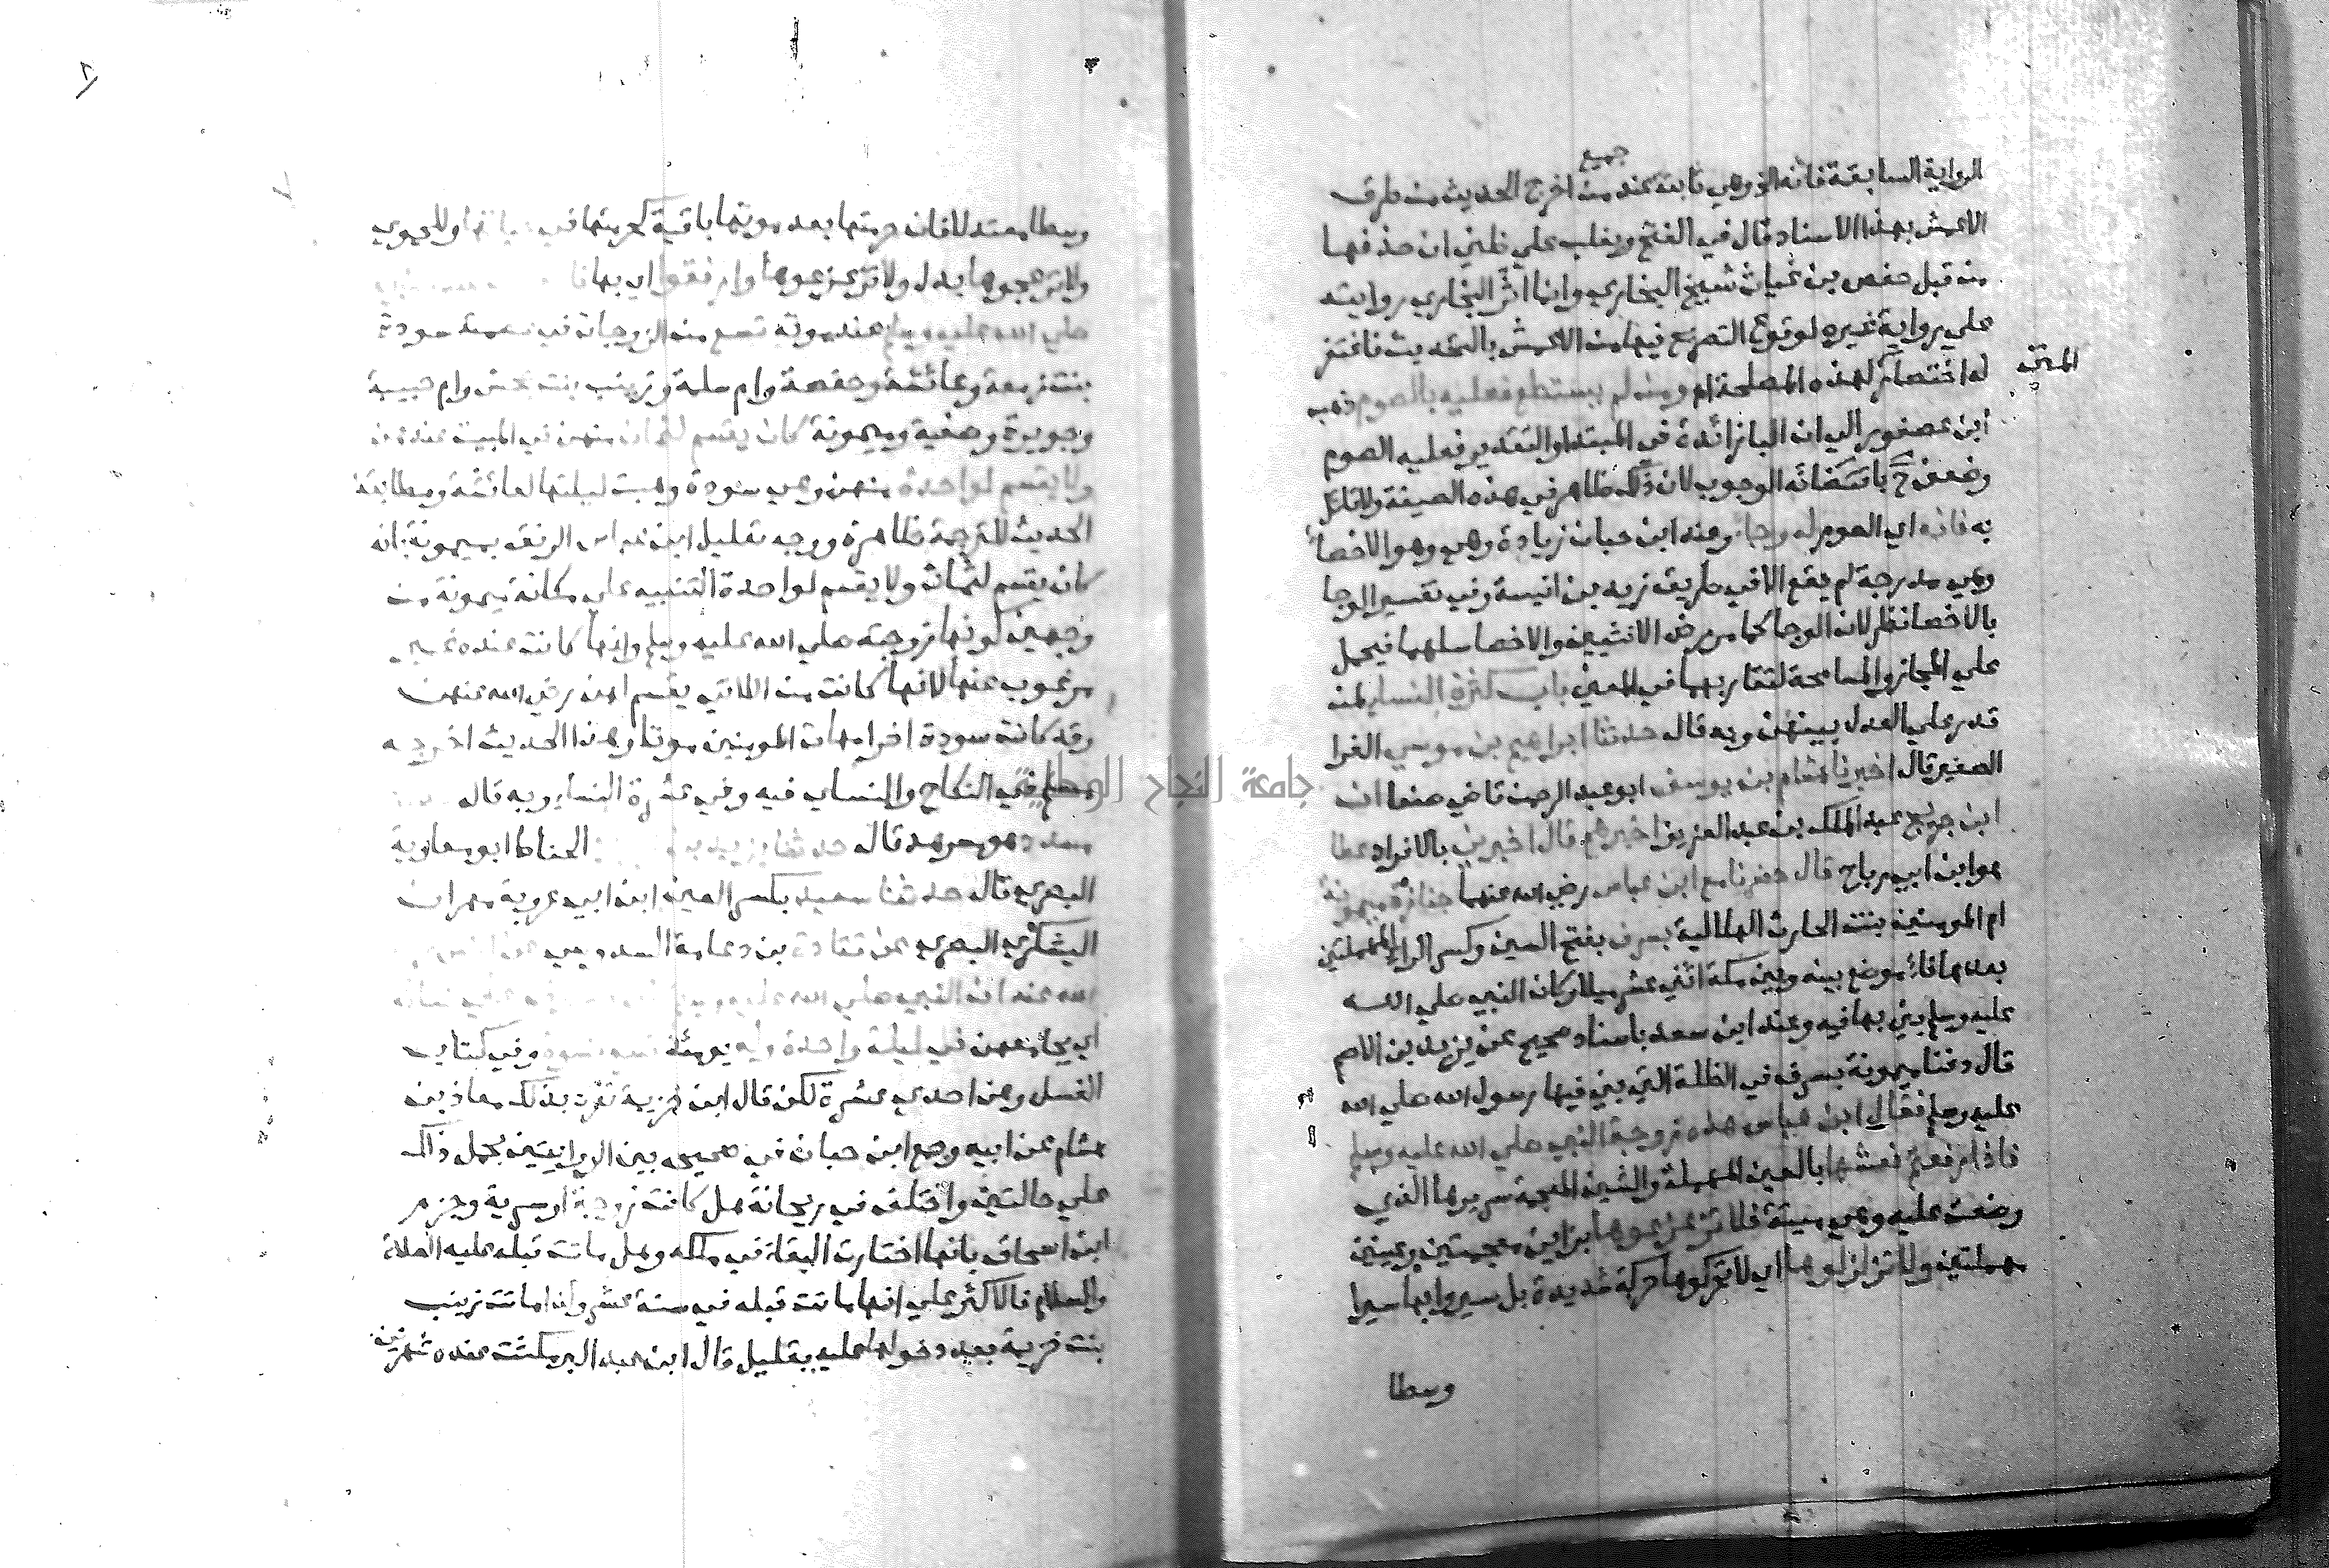 جميع
الرواية السابقة فانه الخ وهي ثابتة عند من اخرج الحديث من طرق
الاعمش بهذا الاسناد قال في الفتح ويغلب علي ظني ان حذفها
من قبل حفص بن غياث شيخ البخاري وانما اثر البخاري روايته
علي رواية غيره لوقوع التصريح فيها من الاعمش بالتحديث فاغتفر
له اختصار لهذه المصلحة اه ومن لم يستطع فعليه بالصوم ذهب
المتن
ابن عصفور الي ان البا زائدة في المبتدا والتقدير فعليه الصوم
وضعف باقتضائه الوجوب لان ذلك ظاهر في هذه الصيغة ولا قائل
به فانه اي الصوم له وجاء وعند ابن حبان زيادة وهي وهو الاخصا
وهي مدرجة لم يقع الا في طريق زيد بن انيسة وفي تفسير الوجا
بالاخصا نظر لان الوجا كما مر رض الانثيين والاخصا سلهما فيحمل
علي المجاز والمسامحة لتقاربهما في المعني باب كثرة النساء لمن
قدر علي العدل بينهن وبه قال حدثنا ابراهيم بن موسي الفرا
الصغير قال اخبرنا هشام بن يوسف ابو عبد الرحمن قاضي صنعا ان
ابن جريج عبد الملك بن عبد العزيز اخبرهم قال اخبرني بالافراد عطا
هو ابن ابي رباح قال حضرنا مع ابن عباس رضي الله عنهما جنازة ميمونة
ام المومنين بنت الحارث الهلالية بسرف بفتح السين وكسر الراء المهملتين
بعدها فاء موضع بينه وبين مكة اثني عشر ميلا وكان النبي صلي الله
عليه وسلم بني بها فيه وعند ابن سعد باسناد صحيح عن يزيد بن الاصم
قال دفنا ميمونة بسرف في الظلة التي بني فيها رسول الله صلي الله
عليه وسلم فقال ابن عباس هذه زوجة النبي صلي الله عليه وسلم
فاذا رفعتم نعشها بالعين المهملة والشين المعجمة سريرها الذي
وضعت عليه وهي ميتة فلا تزعزعوها بزايين معجمتين وعينين
مهملتين ولا تزلزلوها اي لا تحركوها حركة شديدة بل سيروا بها سيرا
وسطا
وسطا معتدلا فان حرمتها بعد موتها باقية كحرمتها في
ولا تزعجوها بدل ولا تزعزعوها وارفقوا اي بها
صلي الله عليه وسلم عند موته تسع من الزوجات في عصمته سودة
بنت زمعة وعائشة وحفصة وام سلمة وزينب بنت جحش وام حبيبة
وجويرية وصفية وميمونة كان يقسم لثمان منهن في المبيت عندهن
ولا يقسم لواحدة منهن وهي سودة وهبت ليلتها لعائشة ومطابقة
الحديث للترجمة ظاهرة ووجه تعليل ابن عباس الرفق بميمونة بانه
كان يقسم لثمان ولا يقسم لواحدة التنبيه علي مكانة ميمونة من
وجهين كونها زوجته صلي الله عليه وسلم وانها كانت عنده غير
مرغوب عنها لانها كانت من اللاتي يقسم لهن رضي الله عنهن
وقد كانت سودة اخر امهات المومنين موتا وهذا الحديث اخرجه
مسلم في النكاح والنساي فيه وفي عشرة النساء وبه قال
مسدد هو مسرهد قال حدثنا يزيد بن الحناط ابو معاوية
البصري قال حدثنا سعيد بكسر العين ابن ابي عروبة مهران
اليشكري البصري عن قتادة بن دعامة السدوسي عن انس
الله عنه ان النبي صلي الله عليه وسلم
اي يجامعهن في ليلة واحدة وله يومئذ تسع نسوة وفي كتاب
الغسل وهن احدي عشرة لكن قال ابن خزيمة تفرد بذلك معاذ بن
هشام عن ابيه وجمع ابن حبان في صحيحه بين الروايتين بحمل ذلك
علي حالتين واختلف في ريحانة هل كانت زوجة او سرية وجزم
ابن اسحاق بانها اختارت البقاء في ملكه وهل ماتت قبله عليه الصلاة
والسلام فالاكثر علي انها ماتت قبله في سنة عشر وانما ماتت زينب
بنت خزيمة بعد دخولها عليه بقليل قال ابن عبد البر مكثت عنده شهرين
جامعة النجاح الوطنية